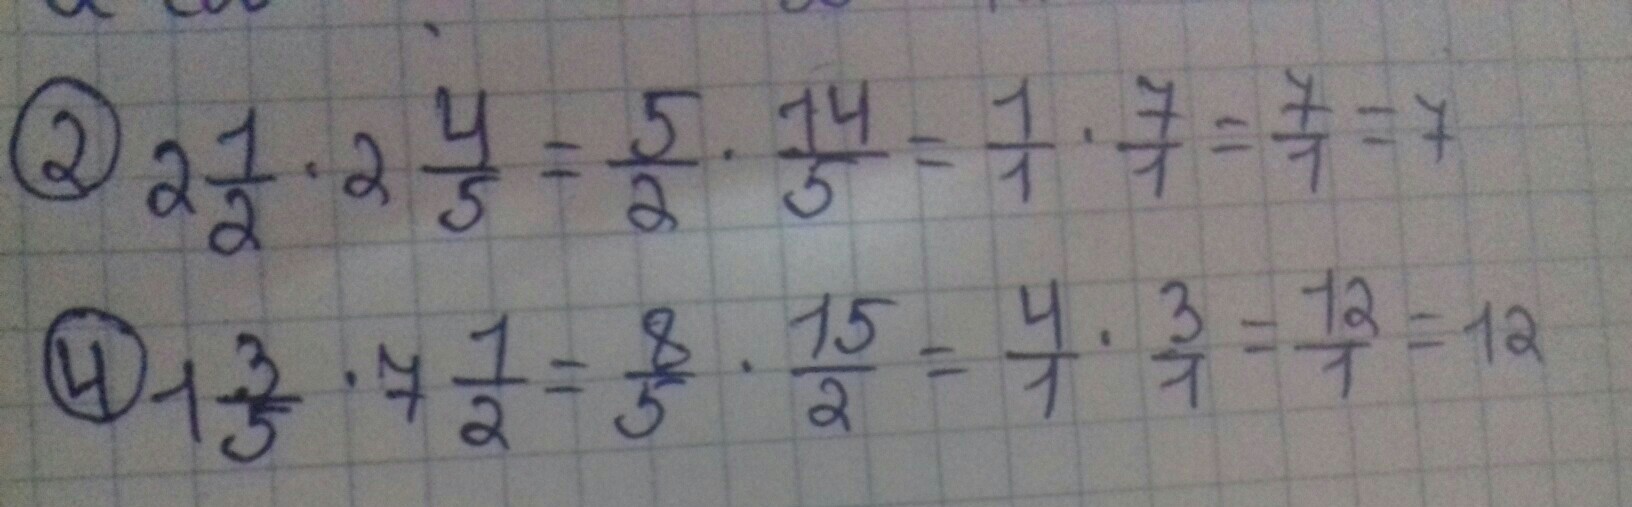 ② 2 1/2 · 2 4/5 = 5/2 · 14/5 = 1/1 · 7/1 = 7/1 = 7
④ 1 3/5 · 7 1/2 = 8/5 · 15/2 = 4/1 · 3/1 = 12/1 = 12